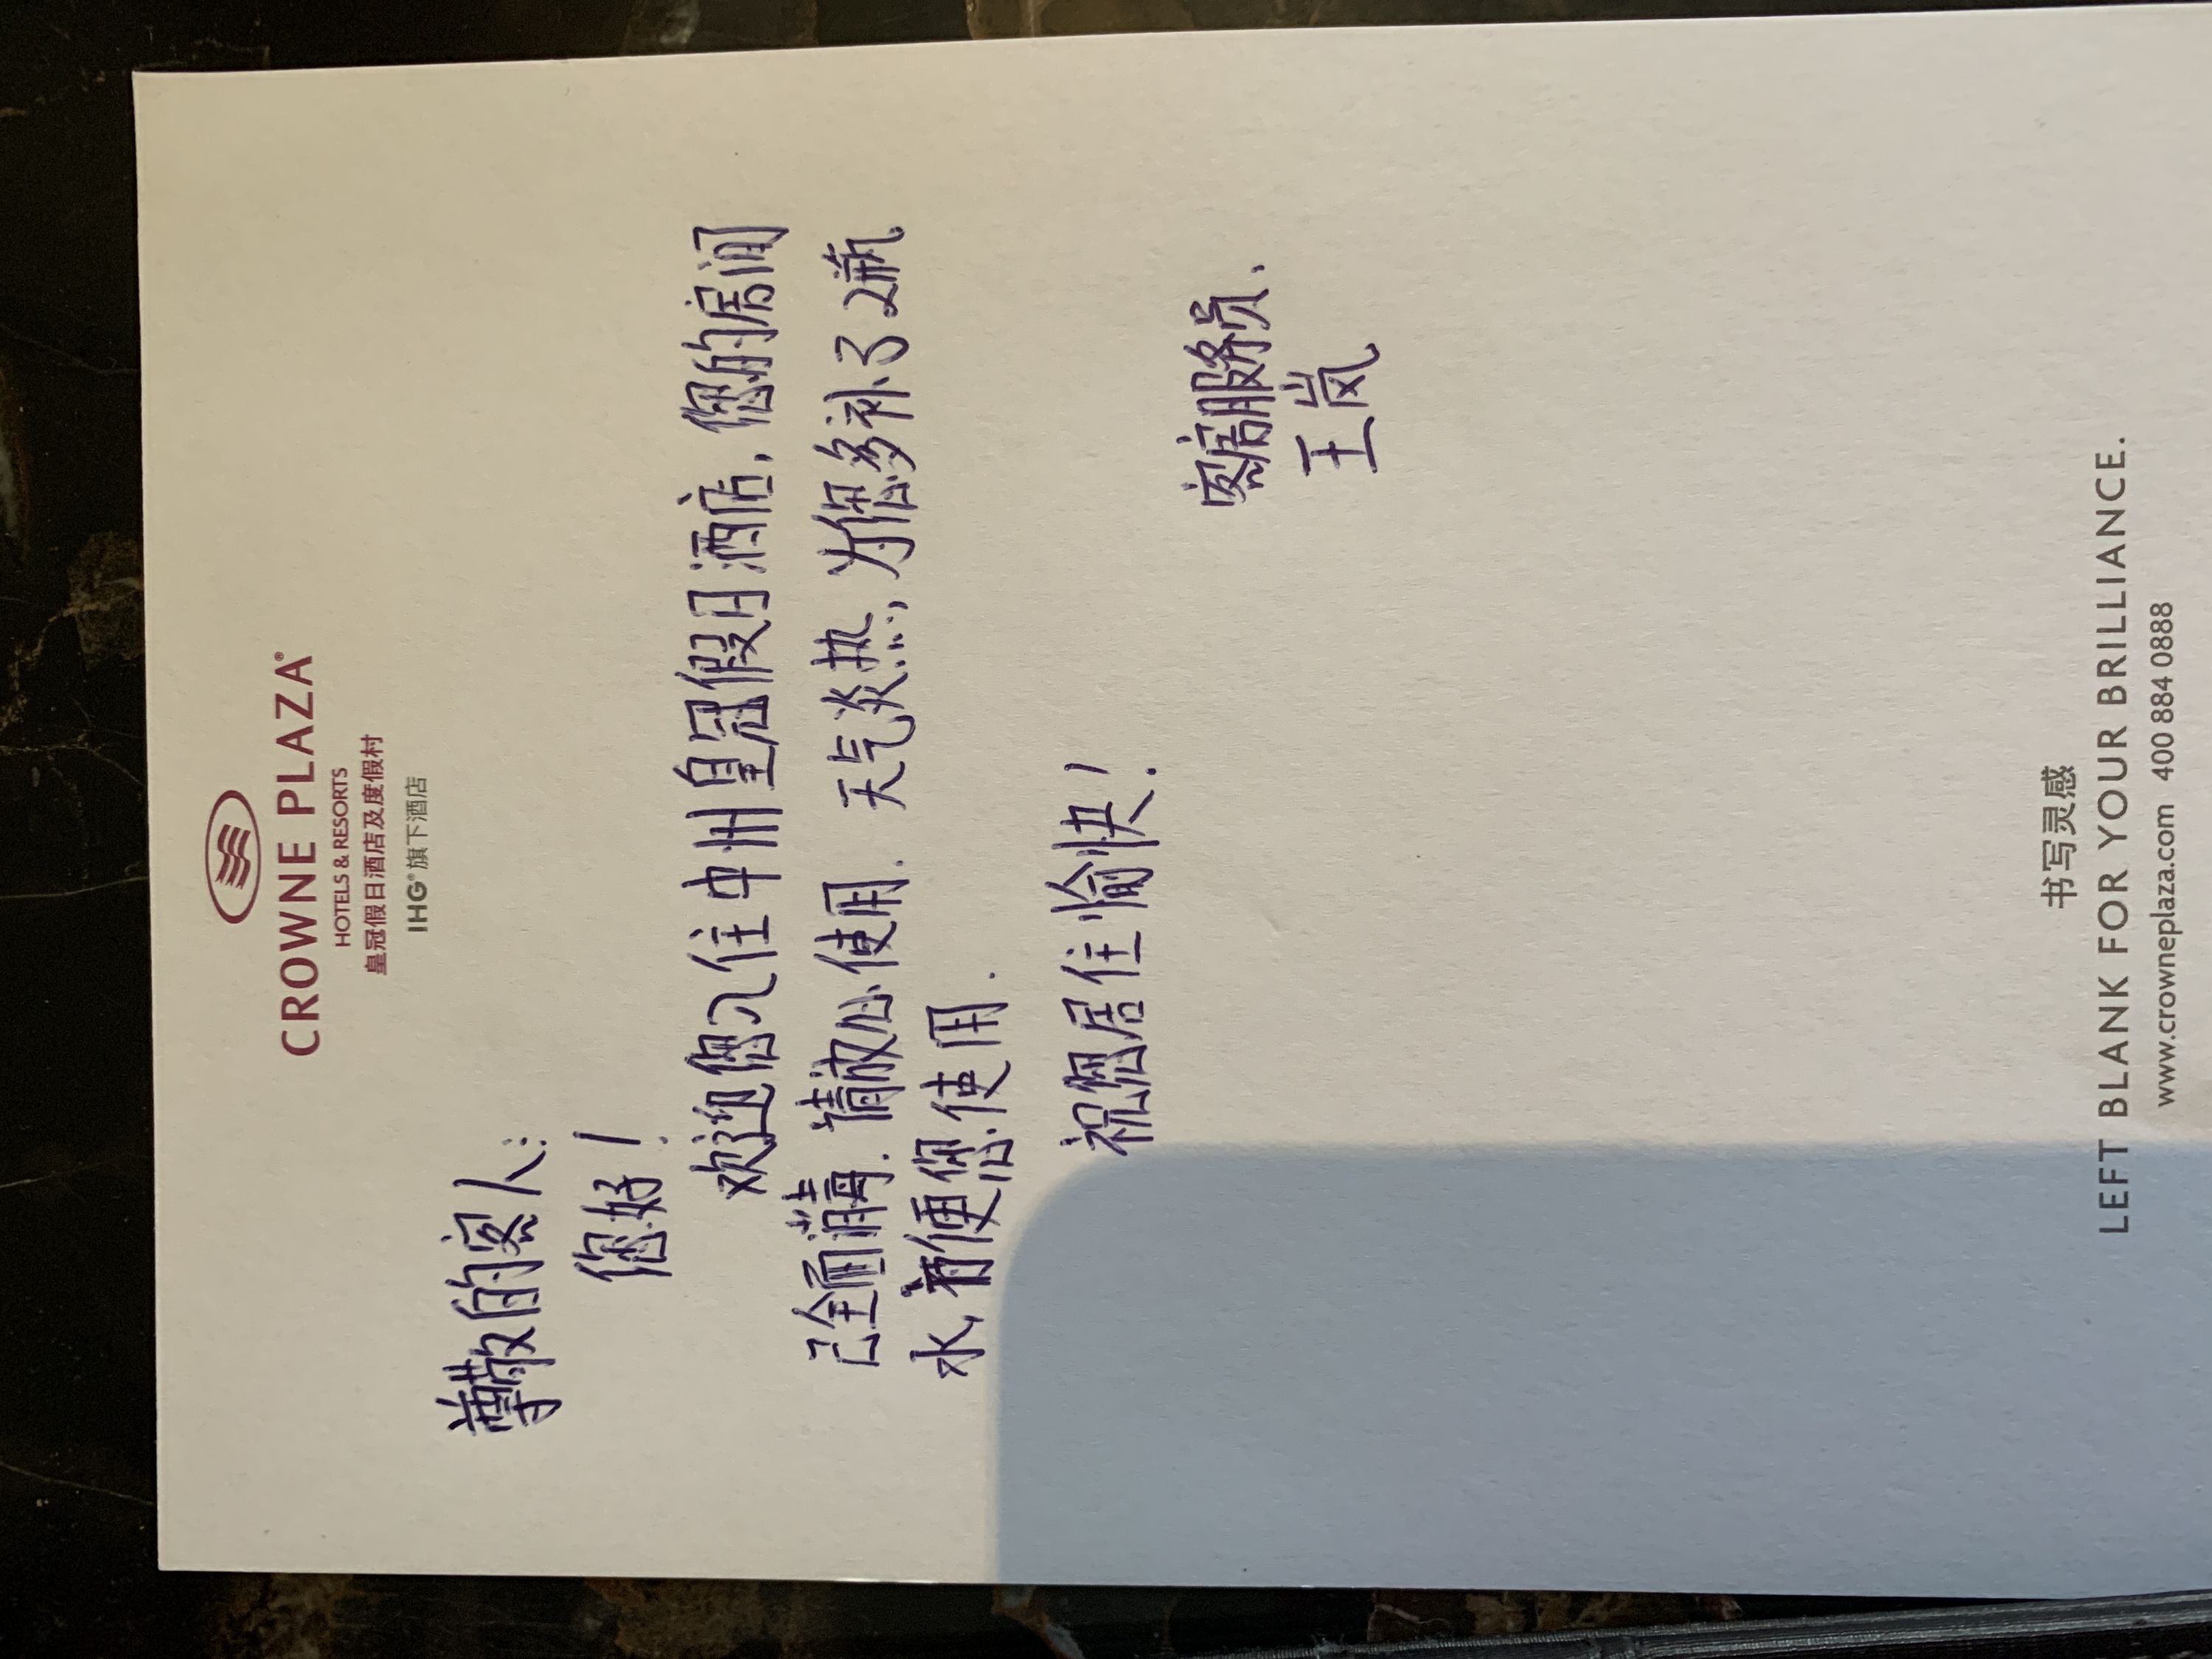 CROWNE PLAZA®
HOTELS & RESORTS
皇冠假日酒店及度假村
IHG®旗下酒店
尊敬的客人:
您好!
欢迎您入住中州皇冠假日酒店,您的房间
已全面消毒.请放心使用.天气炎热,为您多补了2瓶
水,方便您使用.
祝您居住愉快!
客房服务员.
王岚
书写灵感
LEFT BLANK FOR YOUR BRILLIANCE.
www.crowneplaza.com 400 884 0888